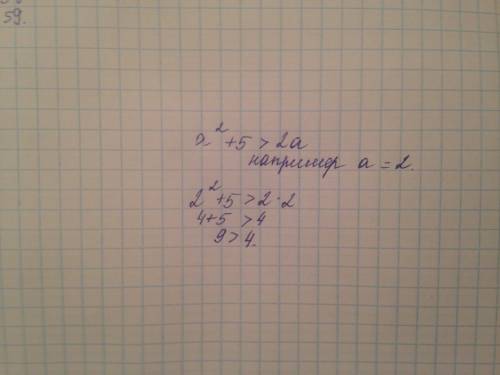 59.
a² + 5 > 2a
например a = 2.
2² + 5 > 2 · 2
4 + 5 > 4
9 > 4.